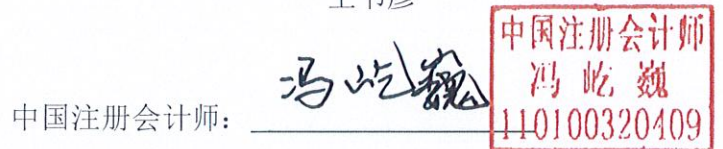 中国注册会计师：冯屹巍
中国注册会计师
冯屹巍
110100320409